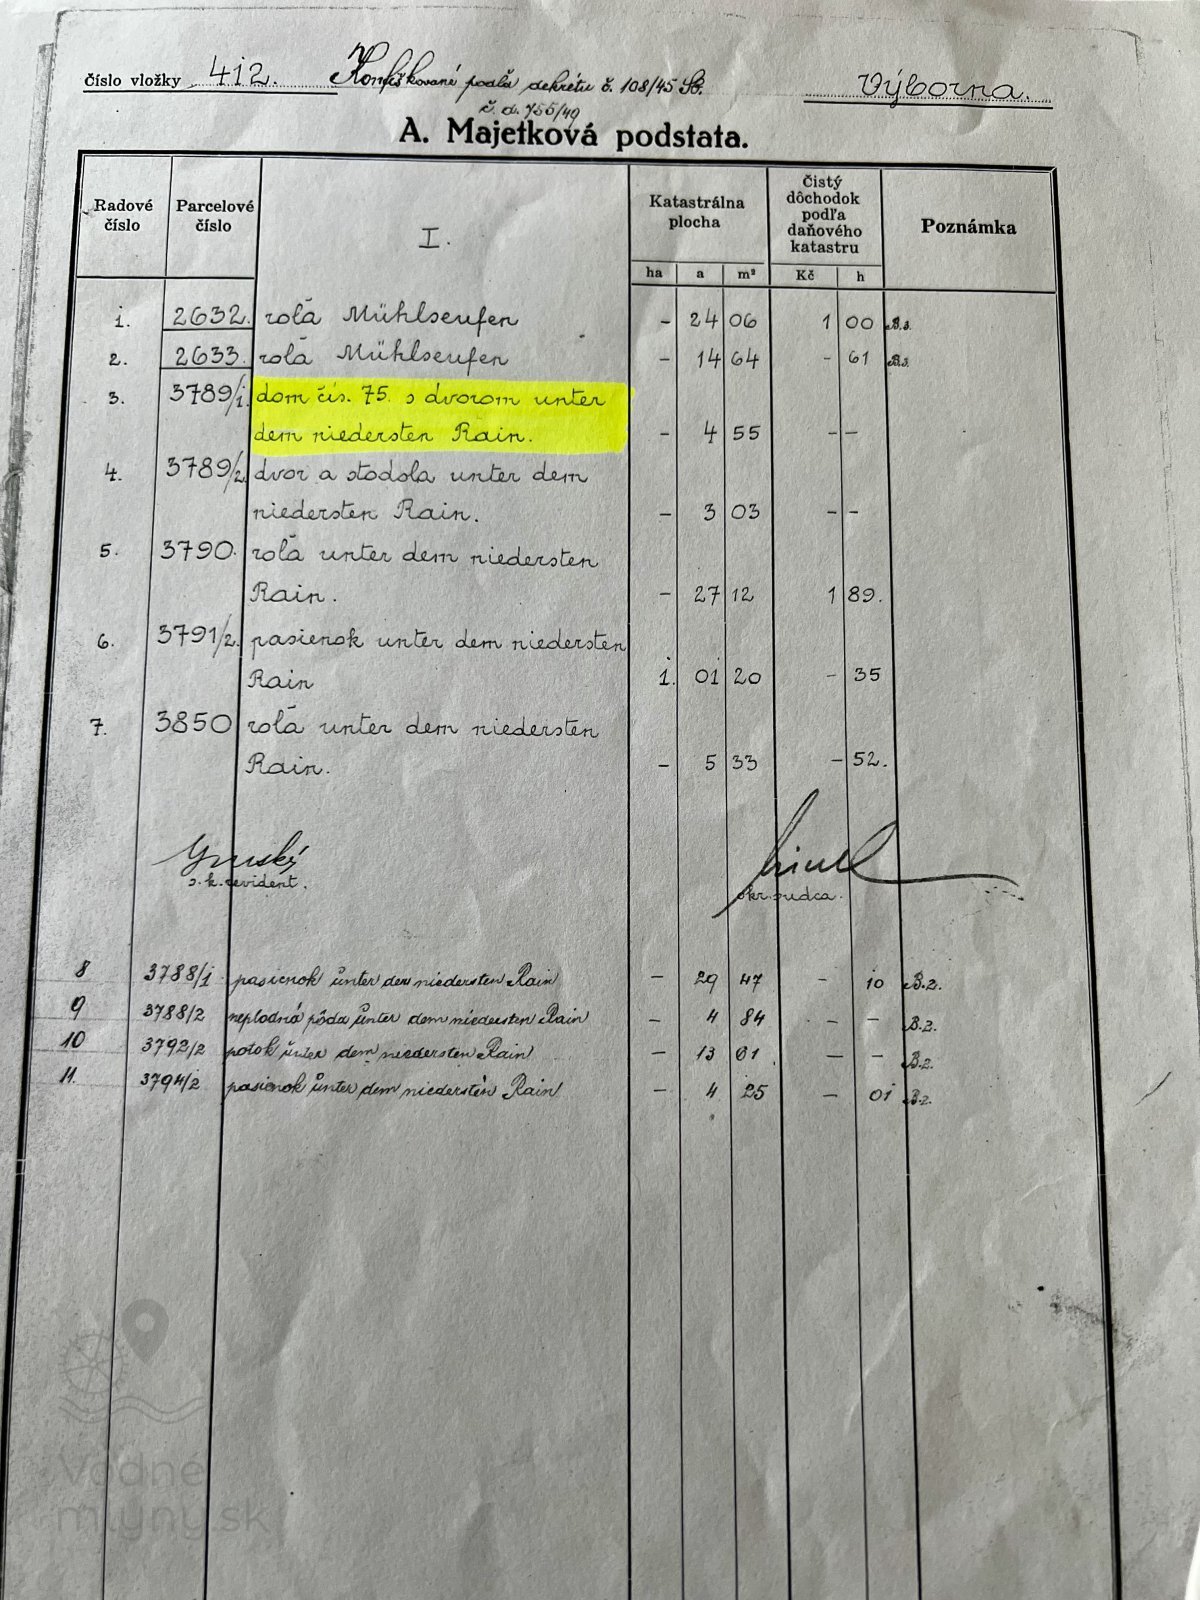 číslo vložky 412. Konfiškované podľa dekrétu č. 108/45 Sb. Výborna.
č. d. 755/49
A. Majetková podstata.
Radové číslo Parcelové číslo I. Katastrálna plocha Čistý dôchodok podľa daňového katastru Poznámka
ha a m² Kč h
1. 2632. rolă Mühlseufen – 24 06 1 00
2. 2633. rolă Mühlseufen – 14 64 - 61
3. 3789/1. dom čis. 75. s dvorom unter
dem niedersten Rain. – 4 55 - -
4. 3789/2. dvor a stodola unter dem
niedersten Rain. – 3 03 - -
5. 3790. rolă unter dem niedersten
Rain. – 27 12 1 89.
6. 3791/2. pasienok unter dem niedersten
Rain 1. 01 20 - 35
7. 3850 rolă unter dem niedersten
Rain. – 5 33 - 52.
s.k. revident.
okr. sudca.
8 3788/1 pasienok unter dem niedersten Rain – 29 47 - 10 B.2.
9 3788/2 neplodná pôda unter dem niedersten Rain – 4 84 - - B.2.
10 3792/2 potok unter dem niedersten Rain – 13 61 - - B.2.
11. 3794/2 pasienok unter dem niedersten Rain – 4 25 - 01 B.2.
Vodné
mlyny.sk